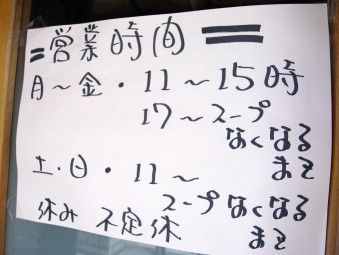 =営業時間=
月～金・11～15時
17～スープ
なくなる
まで
土・日・11～
スープなくなる
まで
休み 不定休